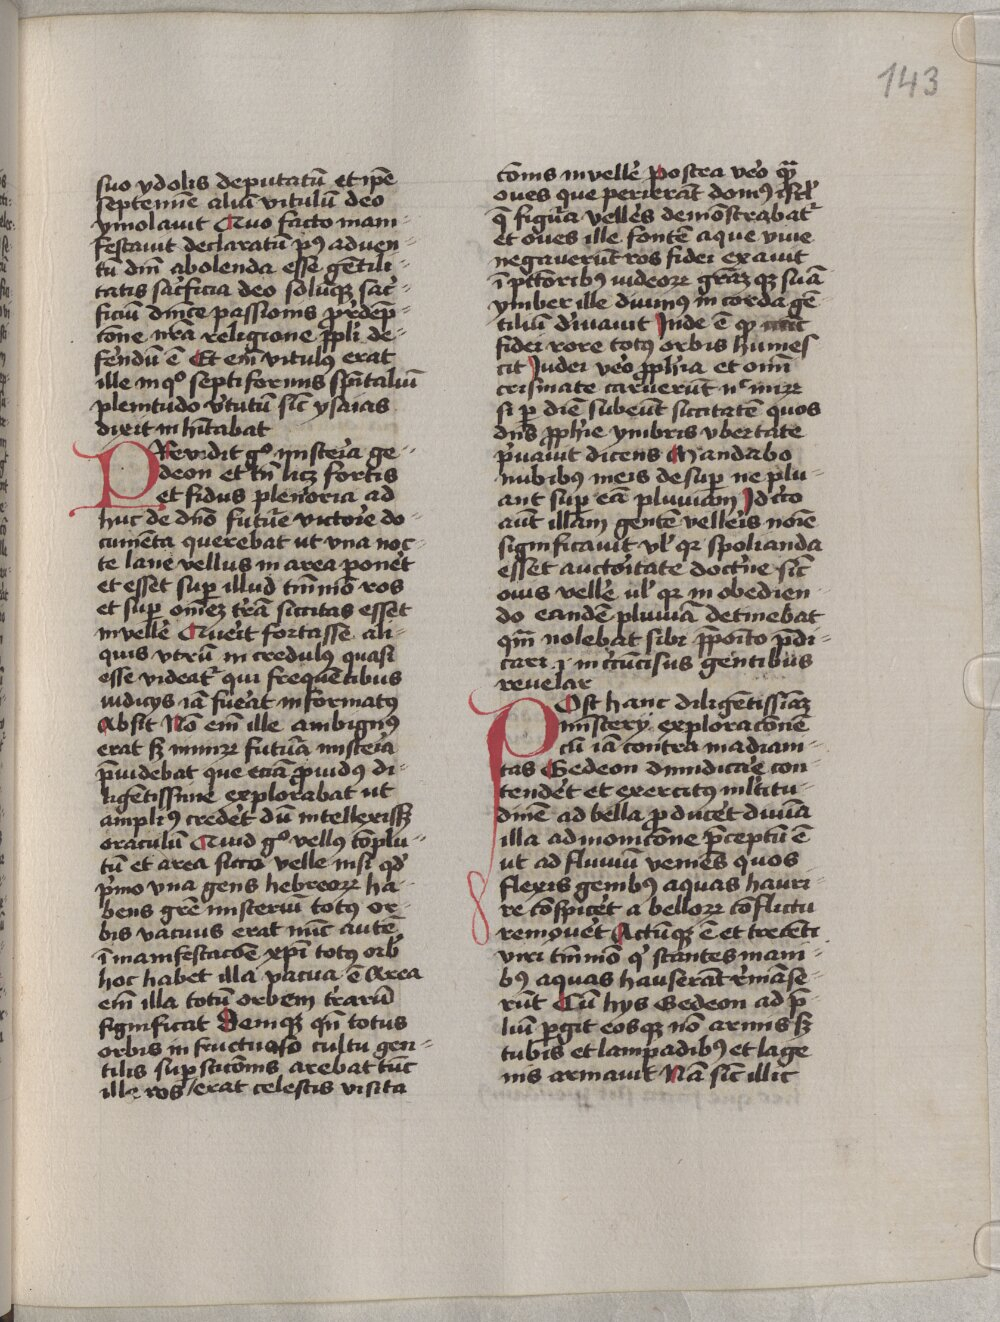 143
suo ydolis deputatū et ipē
septenne aliū vitulū deo
ymolauit Quo facto mani
festauit declaratū p9 aduen
tū dm̄ abolenda esse gētili
tatis sac̄ficia deo solūqꝫ sac̄
ficiū dn̄ice passionis p̄dep̄
cōne nr̄a religione ppl̓i de
fēndū ē Et em̄ vitulus erat
ille in qº septiformis sp̄italiū
plenitudo v̓tutū sic̄ ysaias
dixit inh̄itabat
PRevidit gº misteria ge
deon et tn̄ licꝫ fortis
et fidus plenioria ad
huc de dn̄o futūre victorie do
cumēta querebat ut vna noc
te lane vellus in area ponēt
et esset sup̄ illud tm̄mō ros
et sup̄ om̄eꝫ t̓rā siccitas esset
in velle̓ Querit fortasse ali
quis vtrū incredulꝰ quasi
esse videat̄ qui frequētibus
iudicijs iā fue̓at informatꝰ
Absit Nō em̄ ille ambiguꝰ
erat sꝫ mirꝝ futūra misteria
p̄uidebat que eciā ꝓuidꝰ di
ligētissime explorabat ut
ampliꝰ crede̓t dū intellexissꝫ
oraculū Quid gº vellꝰ cōplu
tū et area sicca velle nisi qd̓
p̓mo vna gens hebreoꝝ ha
bens gr̄e misteriū totꝰ or
bis vacuus erat nūc autē
ī manifestacōe xp̄i totꝰ orb̓
hoc habet illa vacua ē Area
em̄ illa totū orbem t̓rarū
significat Deniqꝫ qn̄ totus
orbis infructuoso cultu gen
tilis sup̄sticōnis arebat tūc
ille ros erat celestis visita
cōnis in velle̓ Postea ve̓o qꝫ
oues que perierāt domꝰ isrl̓
q̄ figūra velle̓s demōstrabat̄
et oues ille fontē aque viue
negauerūt ros fidei exaruit
ī pc̄toribꝰ iudeoꝝ gr̄aꝫqꝫ suā
ymber ille diuinꝰ in corda gē
tiliū d̓iuauit Inde ē qꝫ nūc
fidei rore totꝰ orbis humes
cit Iudei ve̓o ꝓph̄ia et om̄i
crismate caruerūt
si ꝑ diē subeūt siccitatē quos
dn̄s ꝓph̄ie ymbris vbertate
p̓uauit dicens Mandabo
nubibꝰ meis desup̄ ne plu
ant sup̄ eā pluuiam Id̓cirto
aūt illam gentē velle̓is noīe
significauit vl̓ qꝛ spolianda
esset auctoritate doct̓ne sic̄
ouis velle̓ ul̓ qꝛ in obedien
do eandē pluuiā detinebat
qm̄ nolebat sibi p̄poīto p̄di
cari ⁊ incircūcisus gentibus
reuelar
POst hanc diligētissimā
mistery exploracōnē
cū iā contra madiani
tas Gedeon dimidicie con
tende̓t et exercitꝰ mltitu
dinē ad bella ꝓduce̓t diuiā
illa admonicōne p̄ceptū ē
ut ad fluuiū veniēs quos
flexis genibꝰ aquas hauri
re cōspice̓t a belloꝝ cōflictu
remoue̓t Actūqꝫ ē et trecēti
viri tm̄mō qͥ stantes mani
bꝰ aquas hauserāt rīmāse
rūt Cū hys Gedeon ad p̄
liū p̄git eosqꝫ nō armis sꝫ
tubis et lampadibꝰ et lage
nis armauit Nā sic̄ illic